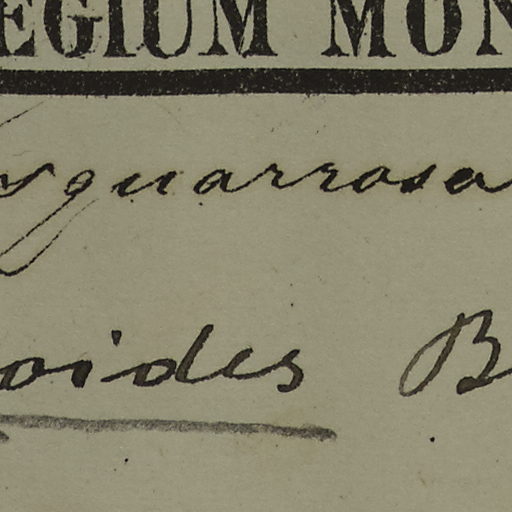 EGIUM MON
squarrosa
oides B